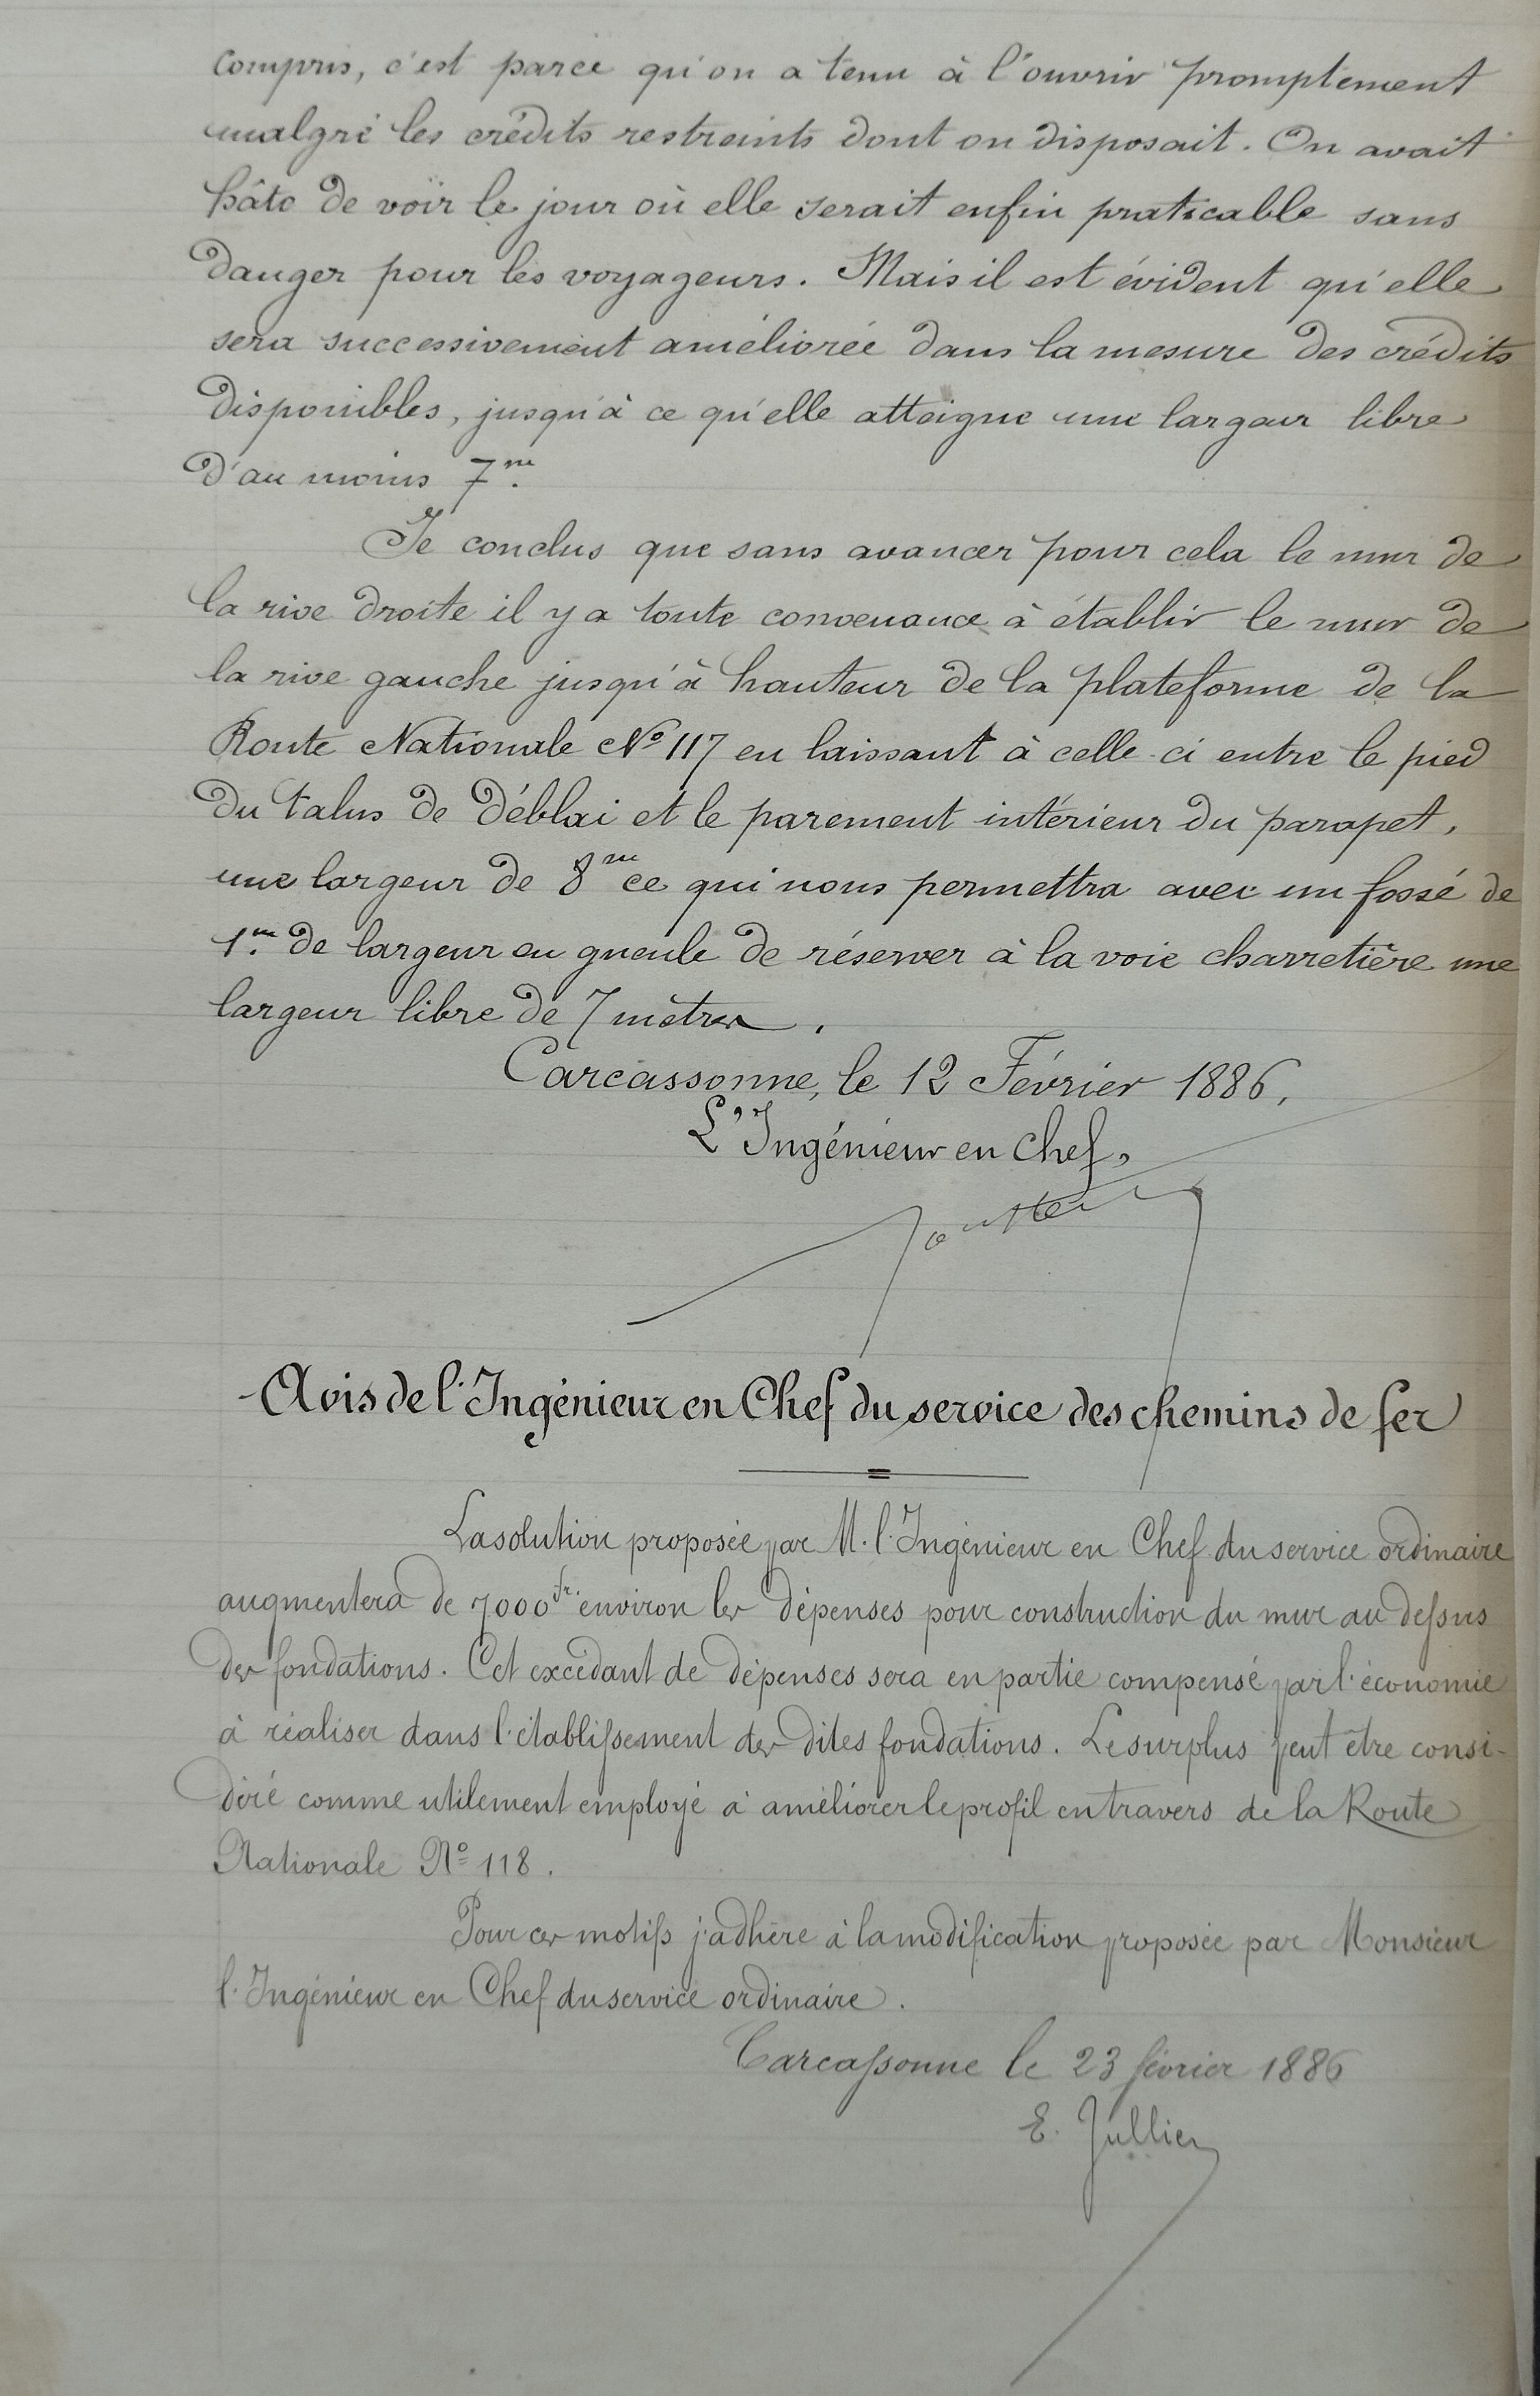 compris, c'est parce qu'on a tenu à l'ouvrir promptement
malgré les crédits restreints dont on disposait. On avait
hâte de voir le jour où elle serait enfin praticable sans
danger pour les voyageurs. Mais il est évident qu'elle
sera successivement améliorée dans la mesure des crédits
disponibles, jusqu'à ce qu'elle atteigne une largeur libre
d'au moins 7m.
Je conclus que sans avancer pour cela le mur de
la rive droite il y a toute convenance à établir le mur de
la rive gauche jusqu'à hauteur de la plateforme de la
Route Nationale No 117 en laissant à celle-ci entre le pied
du talus de déblai et le parement intérieur du parapet,
une largeur de 8m ce qui nous permettra avec un fossé de
1m. de largeur en gueule de réserver à la voie charretière une
largeur libre de 7 mètres.
Carcassonne, le 12 Février 1886,
L'Ingénieur en Chef,
Avis de l'Ingénieur en Chef du service des chemins de fer
La solution proposée par M. l'Ingénieur en Chef du service ordinaire
augmentera de 7000fr. environ les dépenses pour construction du mur au dessus
des fondations. Cet excédant de dépenses sera en partie compensé par l'économie
à réaliser dans l'établissement des dites fondations. Le surplus peut être consi-
déré comme utilement employé à améliorer le profil en travers de la Route
Nationale No 118.
Pour ces motifs j'adhère à la modification proposée par Monsieur
l'Ingénieur en Chef du service ordinaire.
Carcassonne le 23 février 1886
E. Jullien